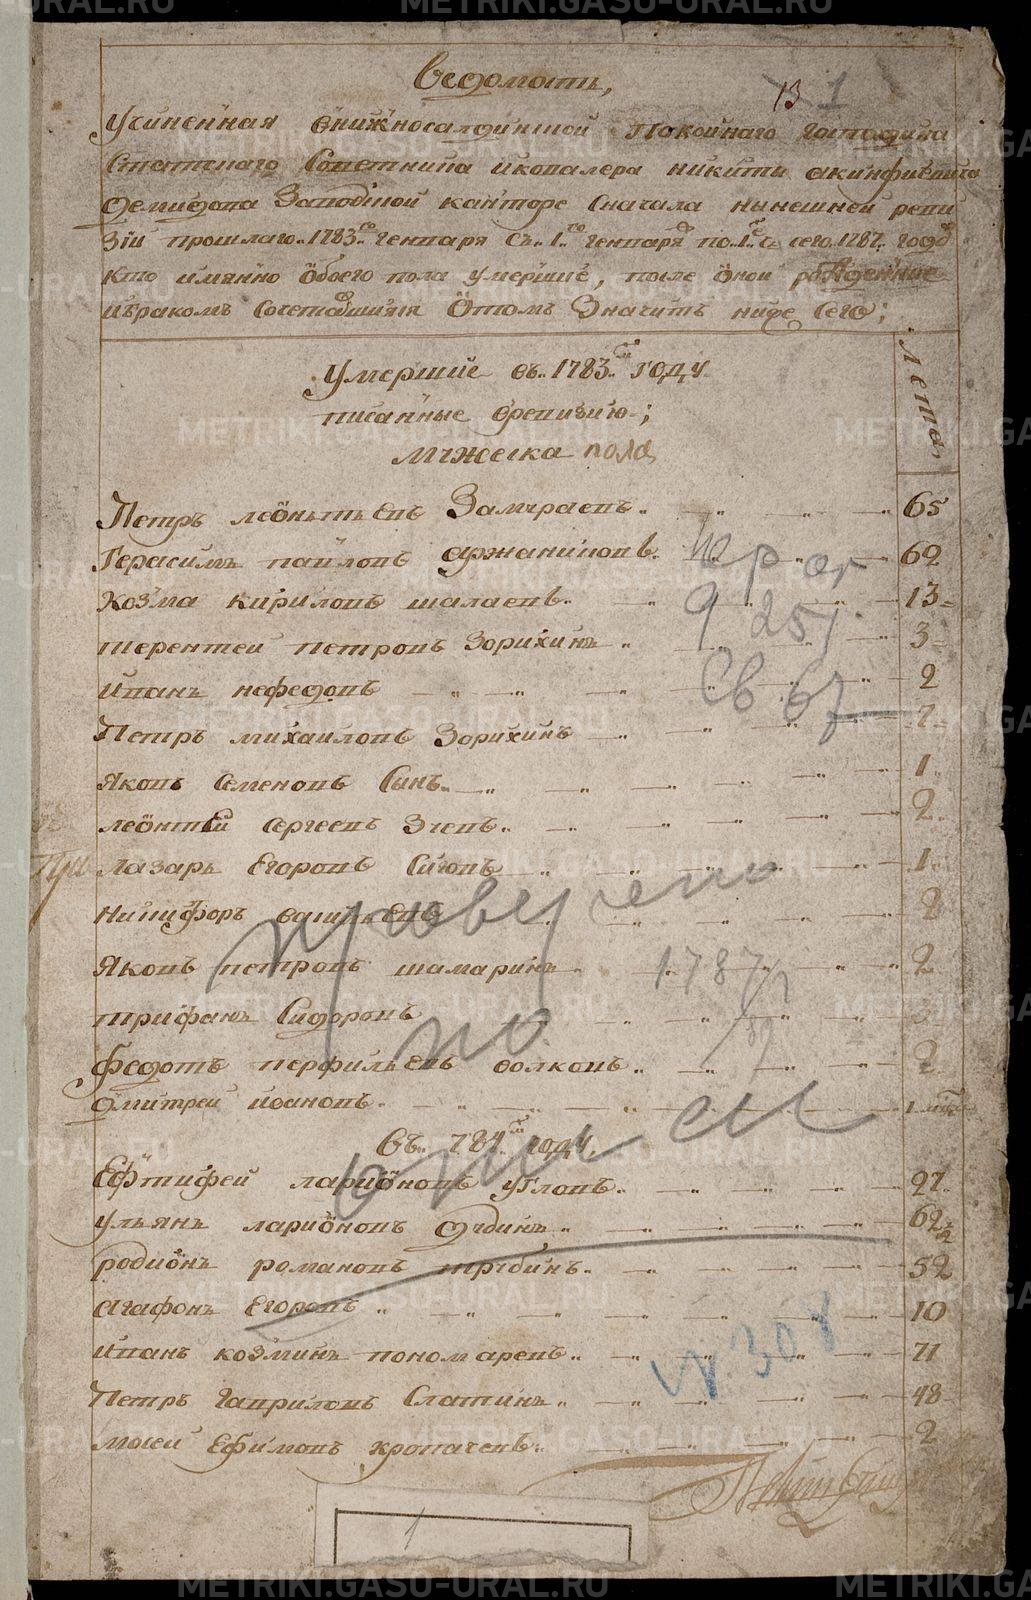 Ведомость,
13 1
Учиненная внижносалдинской Покойнаго господина
Статскаго Советника икавалера никиты акинфиевича
демидова Заводской канторе Сначала нынешней реви
зiи прошлаго 1783 го генваря съ 1 го генваря по 1 е ч сего 1787 года
кто имянно обоего пола умершие, после оной рожденные
ибраком Сочетавшияся Отомъ Значитъ ниже Сего;
лета
умершие въ 1783 м году
писанные вревизию;
мужеска пола
Петръ леонтьевъ Замураевъ 65
Герасимъ павловъ аржанниковъ 62
Козма кириловъ шалаевъ 13
терентей петровъ Зорихинъ 3
иванъ нефедовъ 2
Петръ михаиловъ Зорихинъ 7
Яковъ Семеновъ Сынъ 1
леонтей Сергеевъ Зуевъ 2
лазарь Егоровъ Сизовъ 1
никифоръ васильевъ 2
Яковъ петровъ шамаринъ 2
трифанъ Сидоровъ 3
федотъ перфильевъ волковъ 2
дмитрей ивановъ 1
проверено
1787
по
описи
Въ 784 м году
Ефтифей ларионовъ угловъ 27
ульянъ ларионовъ дубинъ 62
родионъ романовъ трубинъ 52
агафонъ Егоровъ 10
иванъ козминъ пономаревъ 71
Петръ гавриловъ Слатинъ 48
моисей Ефимовъ кропачевъ 2
№ 308
1
METRIKI.GASO-URAL.RU